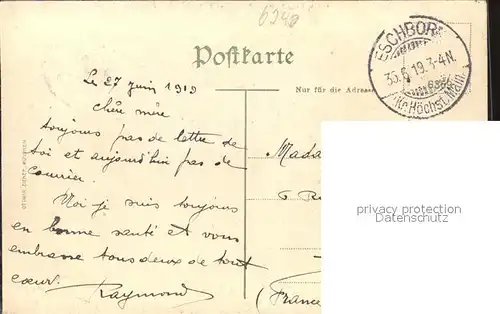 6340
Postkarte
ESCHBORN
19.3-4N.
Kr. Höchst, Main.
Nur für die Adresse
Le 27 juin 1919
Chère mère
toujours pas de lettre de
toi et aujourd'hui pas de
courrier.
Moi je suis toujours
en bonne santé et vous
embrasse tous deux de tout
cœur.
Raymond
Mada
6 R
(France
privacy protection
www.oldthing.de